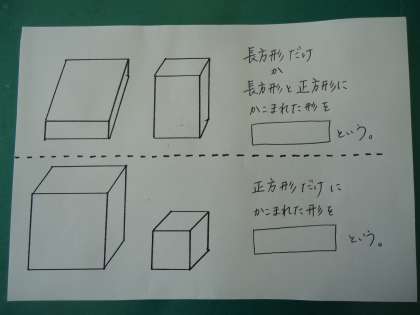 長方形だけ
か
長方形と正方形に
かこまれた形を
という。
正方形だけに
かこまれた形を
という。